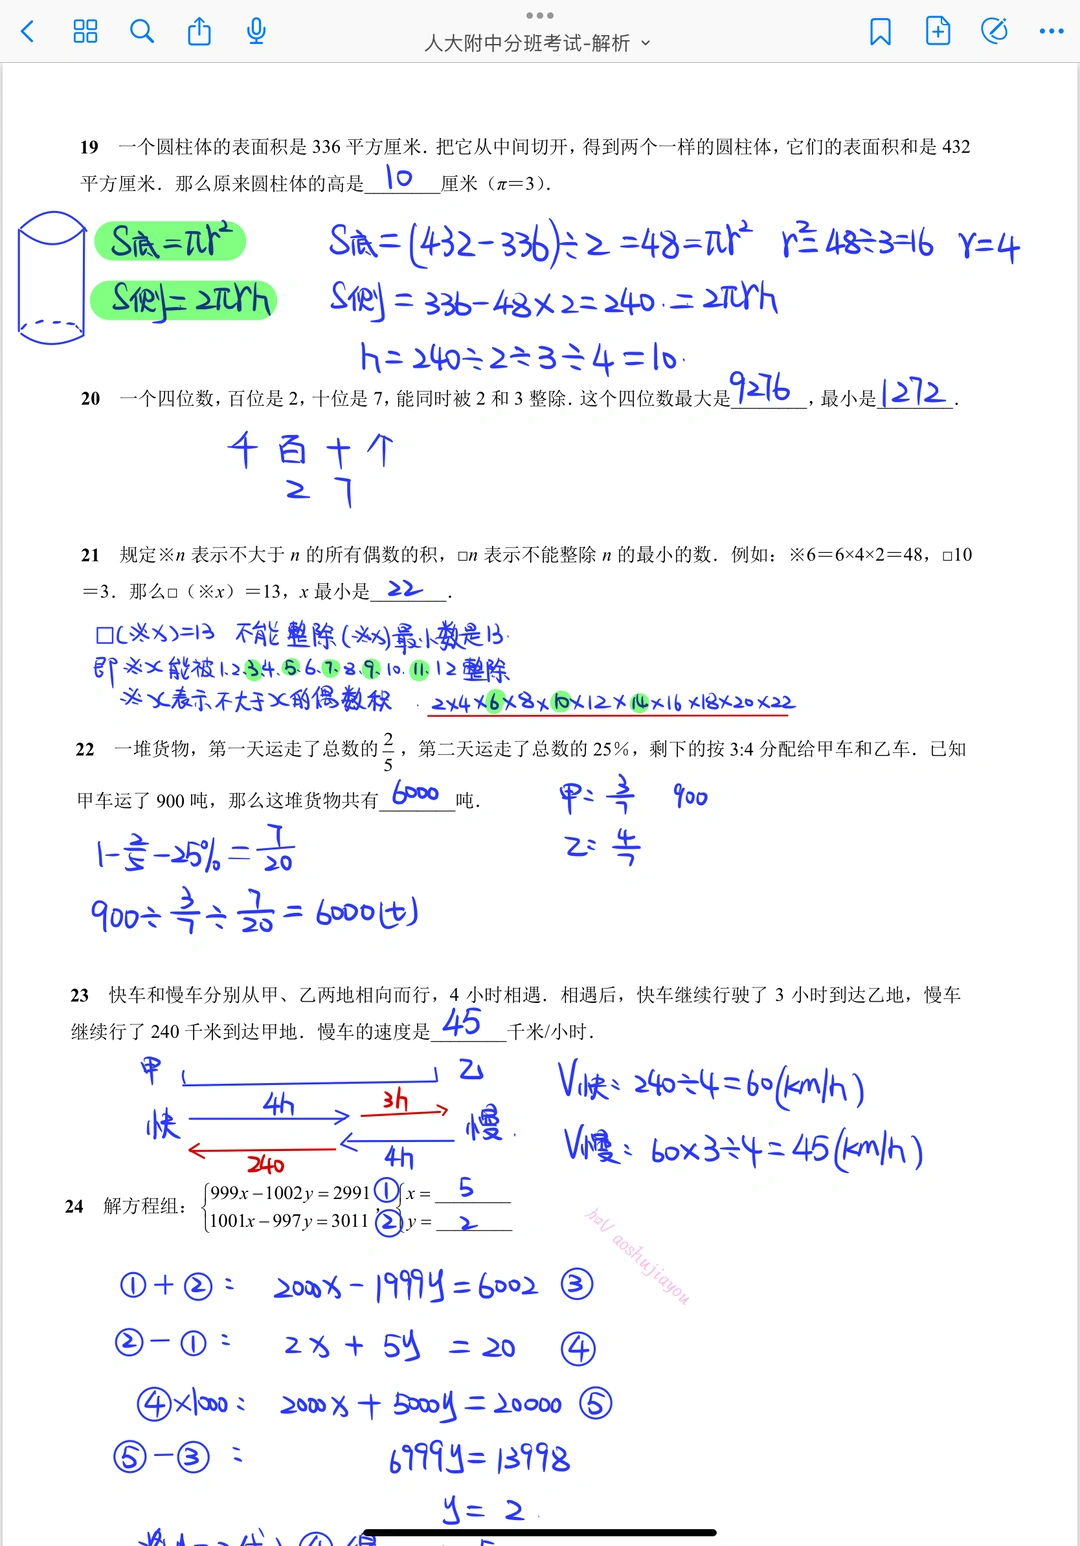 人大附中分班考试-解析
19 一个圆柱体的表面积是 336 平方厘米．把它从中间切开，得到两个一样的圆柱体，它们的表面积和是 432
平方厘米．那么原来圆柱体的高是 10 厘米（π＝3）．
S底=πr² S底=(432-336)÷2=48=πr² r²=48÷3=16 r=4
S侧=2πrh S侧=336-48×2=240.=2πrh
h=240÷2÷3÷4=10.
20 一个四位数，百位是 2，十位是 7，能同时被 2 和 3 整除．这个四位数最大是 9276，最小是 1272．
千 百 十 个
2 7
21 规定※n 表示不大于 n 的所有偶数的积，□n 表示不能整除 n 的最小的数．例如：※6＝6×4×2＝48，□10
＝3．那么□（※x）＝13，x 最小是 22．
□(※x)=13 不能整除(※x)最小数是13.
即※x能被1.2.3.4.5.6.7.8.9.10.11.12整除
※x表示不大于x的偶数积. 2×4×6×8×10×12×14×16×18×20×22
22 一堆货物，第一天运走了总数的 2/5，第二天运走了总数的 25%，剩下的按 3:4 分配给甲车和乙车．已知
甲车运了 900 吨，那么这堆货物共有 6000 吨．
甲: 3/7 900
乙: 4/7
1-2/5-25%=7/20
900÷3/7÷7/20=6000(t)
23 快车和慢车分别从甲、乙两地相向而行，4 小时相遇．相遇后，快车继续行驶了 3 小时到达乙地，慢车
继续行了 240 千米到达甲地．慢车的速度是 45 千米/小时．
甲 乙
快 4h 3h 慢.
240 4h
V快: 240÷4=60(km/h)
V慢: 60×3÷4=45(km/h)
24 解方程组：{999x－1002y＝2991 ①，{x＝ 5
1001x－997y＝3011 ② y＝ 2
h≥V aoshujiayou
①+②: 2000x-1999y=6002 ③
②-①: 2x+5y=20 ④
④×1000: 2000x+5000y=20000 ⑤
⑤-③: 6999y=13998
y=2.